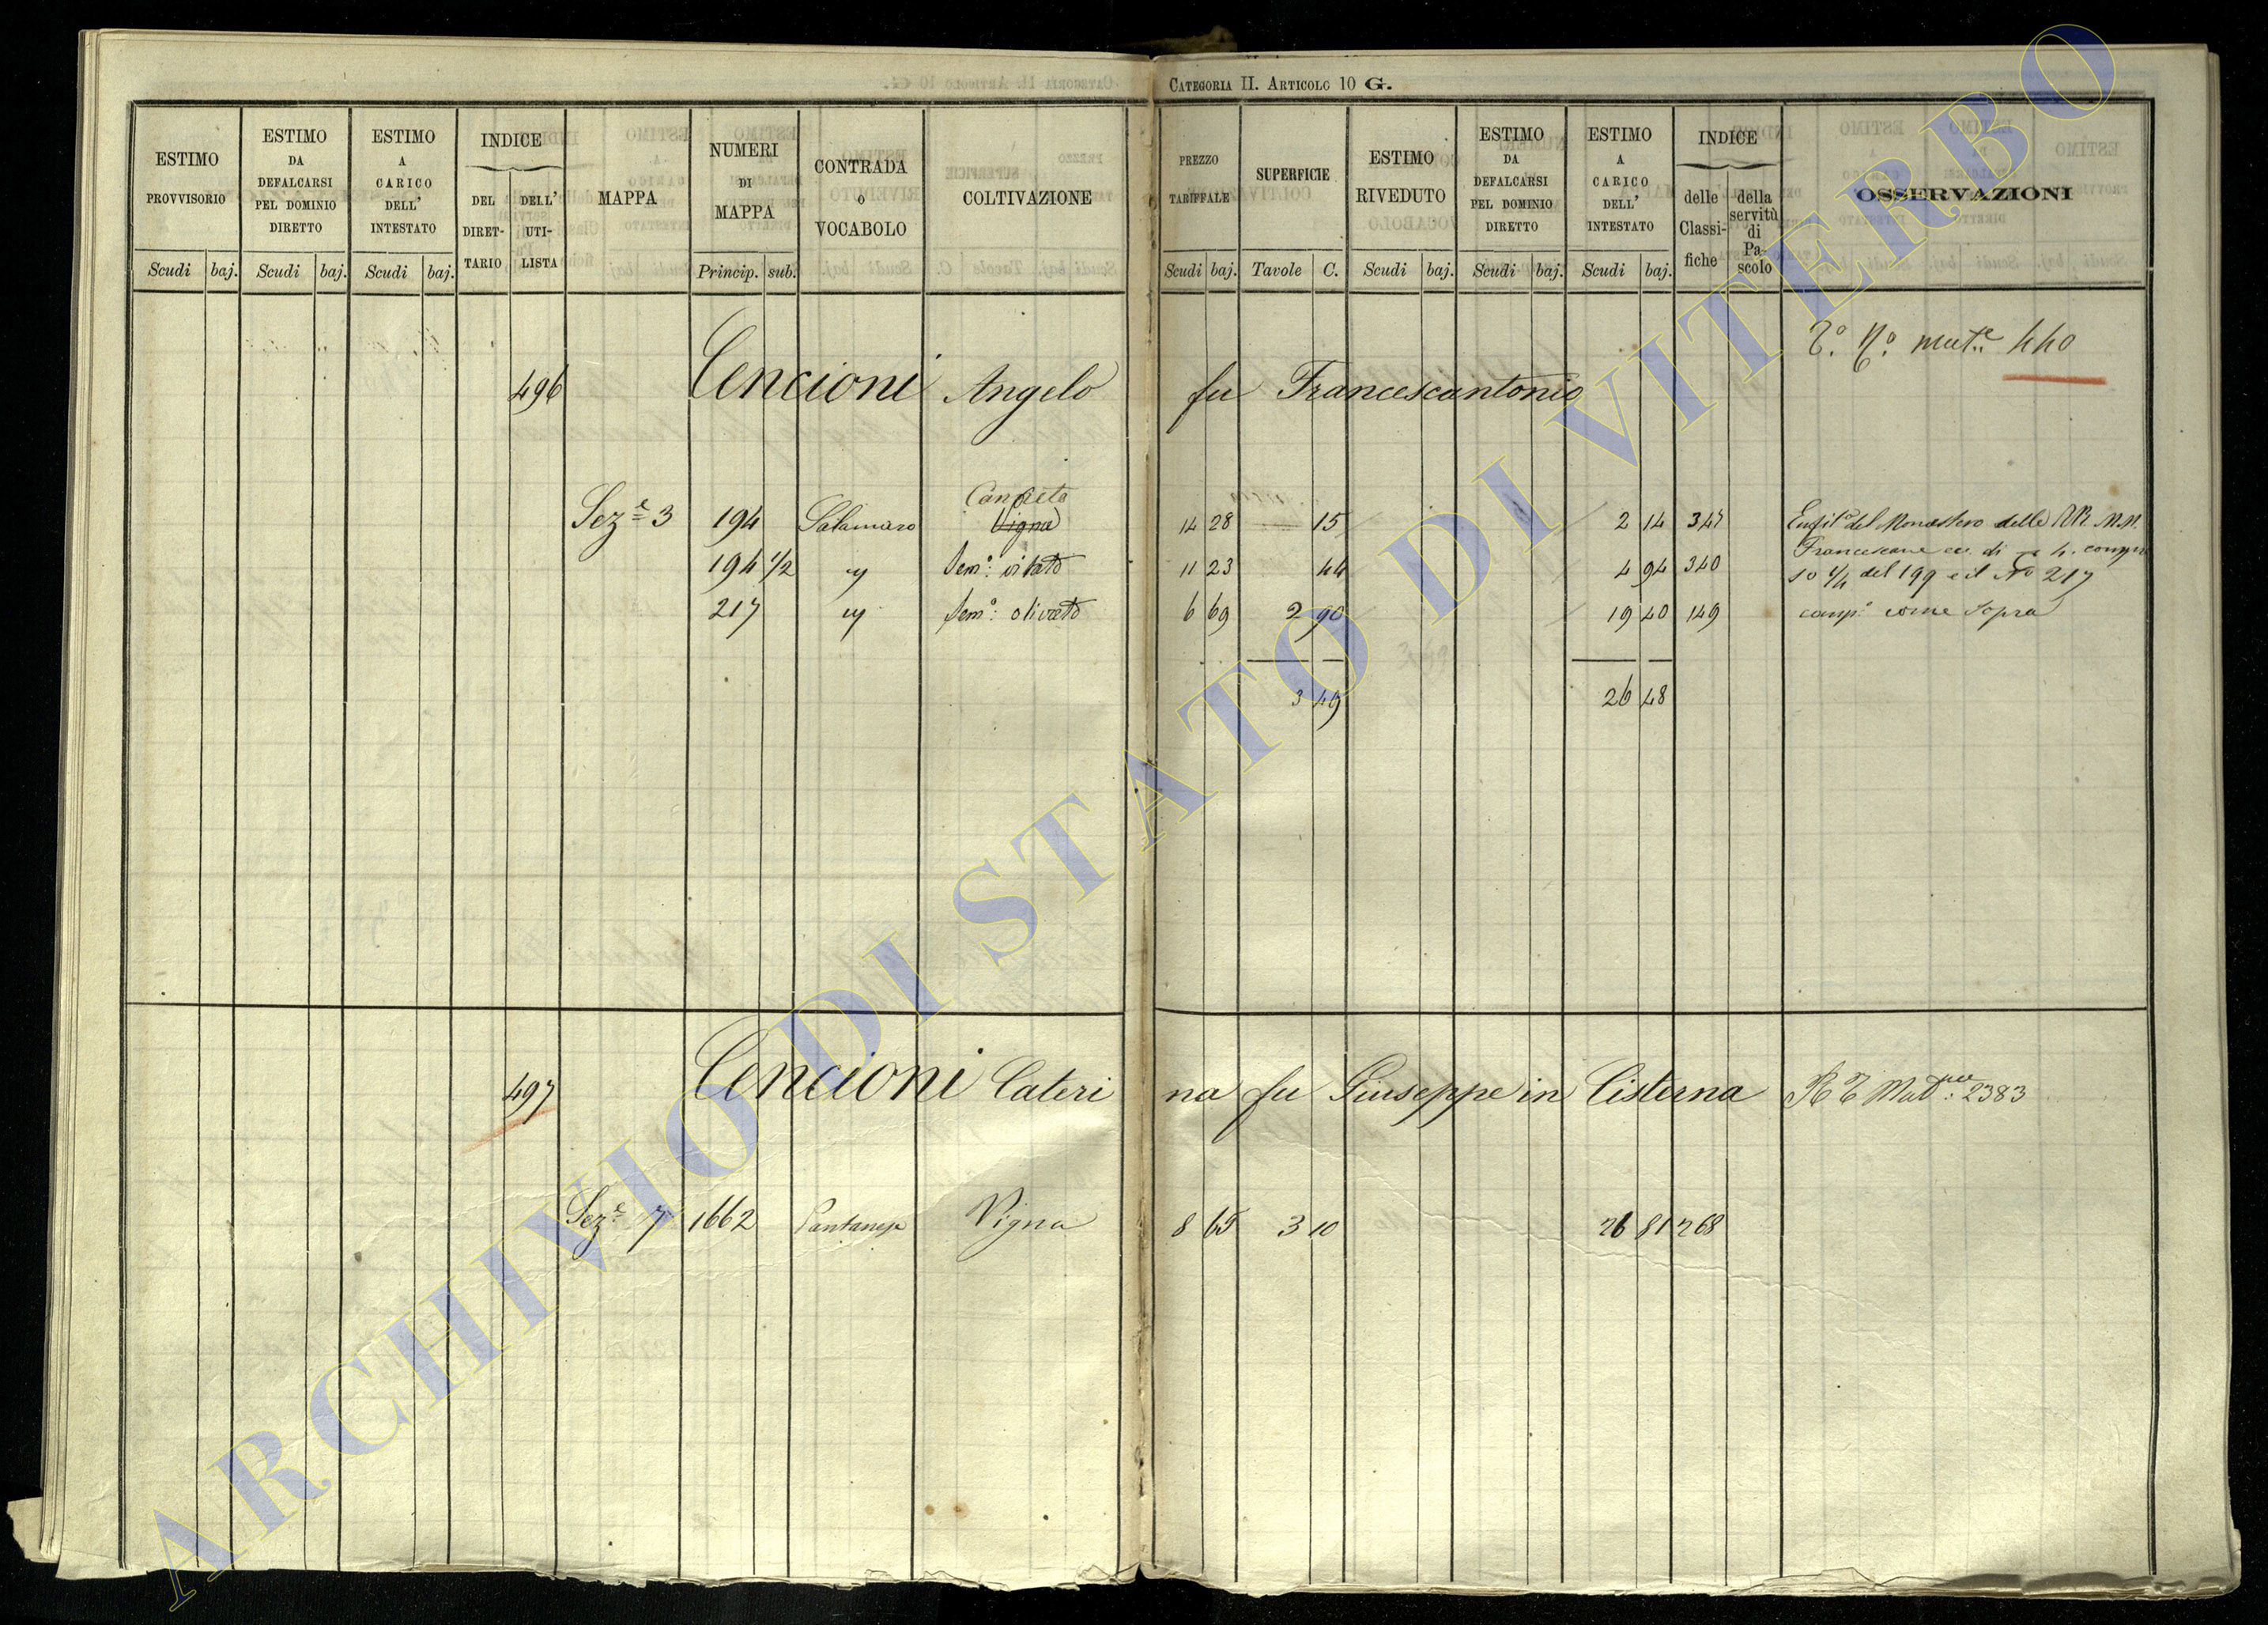 CATEGORIA II. ARTICOLO 10 G.
ESTIMO PROVVISORIO Scudi baj.
ESTIMO DA DEFALCARSI PEL DOMINIO DIRETTO Scudi baj.
ESTIMO A CARICO DELL' INTESTATO Scudi baj.
INDICE DEL DIRETTARIO DELL' UTILISTA
MAPPA
NUMERI DI MAPPA Princip. sub.
CONTRADA O VOCABOLO
COLTIVAZIONE
PREZZO TARIFFALE Scudi baj.
SUPERFICIE Tavole C.
ESTIMO RIVEDUTO Scudi baj.
ESTIMO DA DEFALCARSI PEL DOMINIO DIRETTO Scudi baj.
ESTIMO A CARICO DELL' INTESTATO Scudi baj.
INDICE delle Classifiche della servitù di Pascolo
OSSERVAZIONI
440
496 Cencioni Angelo fu Francescantonio
Canneto
Seze 3 194 Salamaro Vigna 14 28 15 2 14 347 del Monastero delle RR. M.M.
194 1/2 " Semo: vitato 11 23 44 4 94 340 Francescane di
1/4 del 199 e il No 217
217 " Semo: olivato 6 69 2 90 19 40 149 come Sopra
3 49 26 48
497 Cencioni Caterina fu Giuseppe in Cisterna 2383
Seze 7 1662 Pantanese Vigna 8 65 3 10 26 81 268
ARCHIVIO DI STATO DI VITERBO